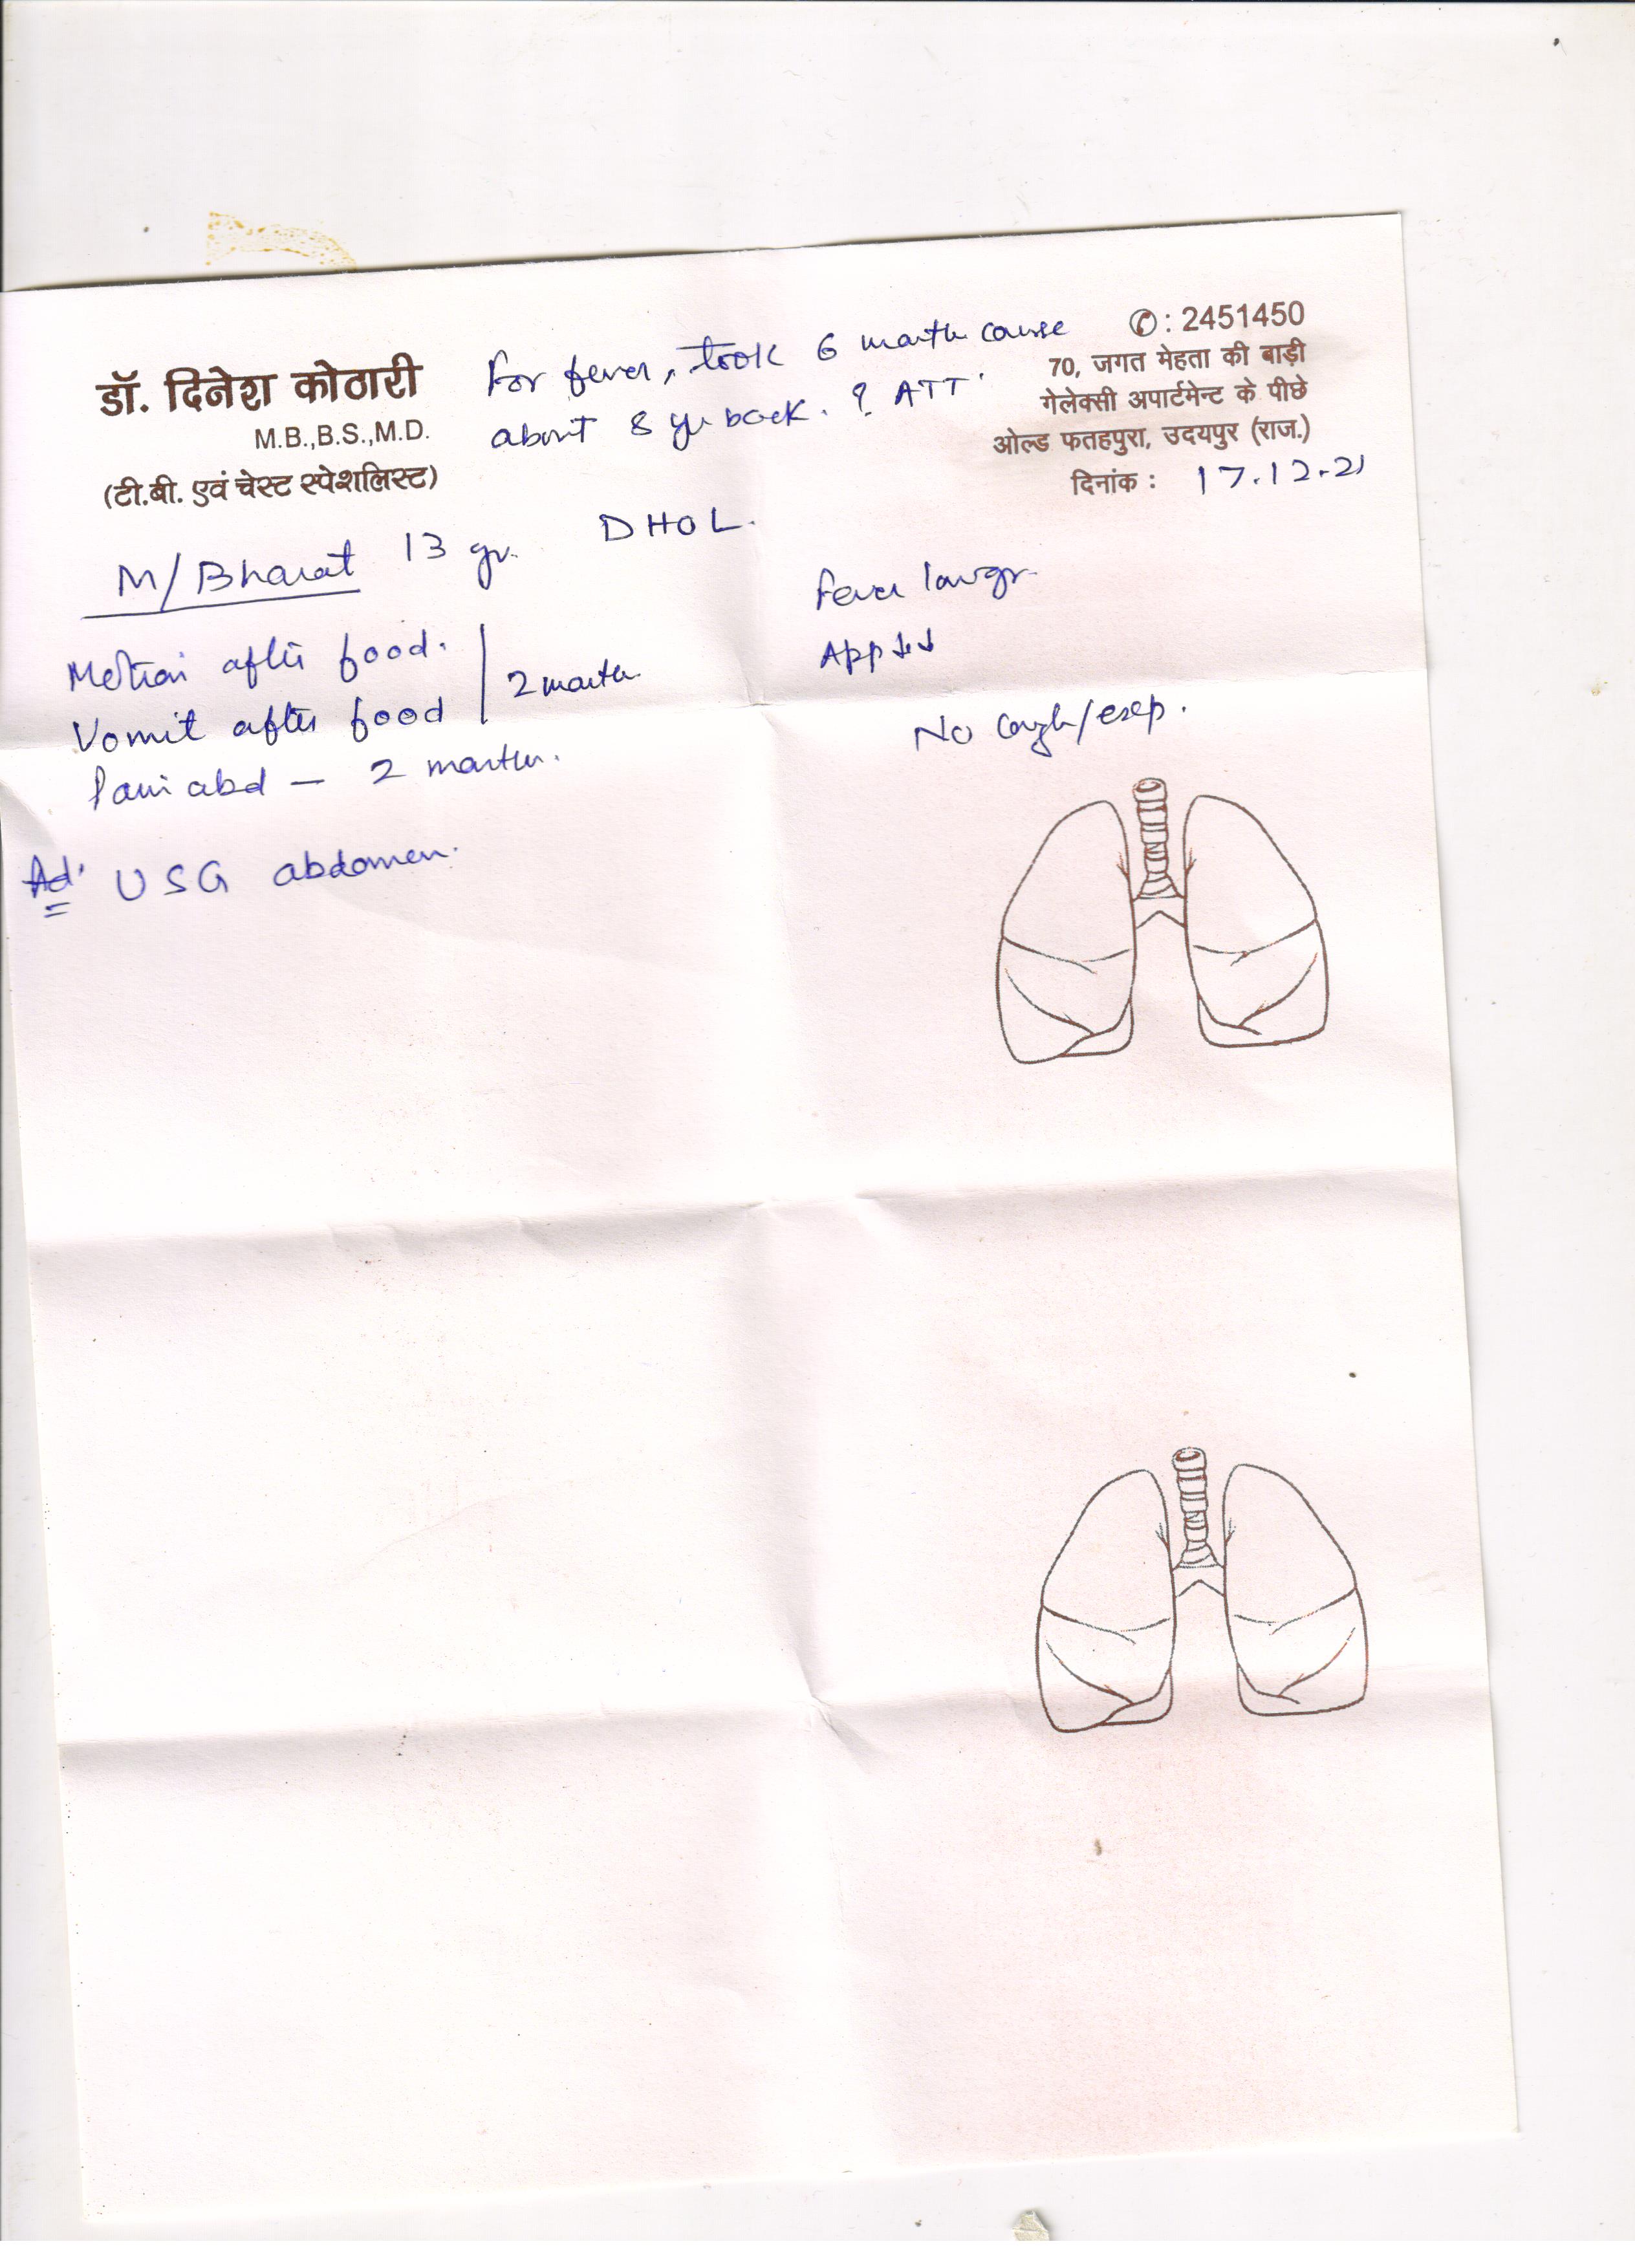 डॉ. दिनेश कोठारी
M.B.,B.S.,M.D.
(टी.बी. एवं चेस्ट स्पेशलिस्ट)
For fever, took 6 month course
about 8 yr back. ? ATT
✆: 2451450
70, जगत मेहता की बाड़ी
गेलेक्सी अपार्टमेन्ट के पीछे
ओल्ड फतहपुरा, उदयपुर (राज.)
दिनांक : 17.12.21
M/Bharat 13 yr. DHOL.
Motion after food.
Vomit after food
2 month
Pain abd — 2 month.
Fever low gr.
App ↓↓
No cough/exp.
Ad' USG abdomen.